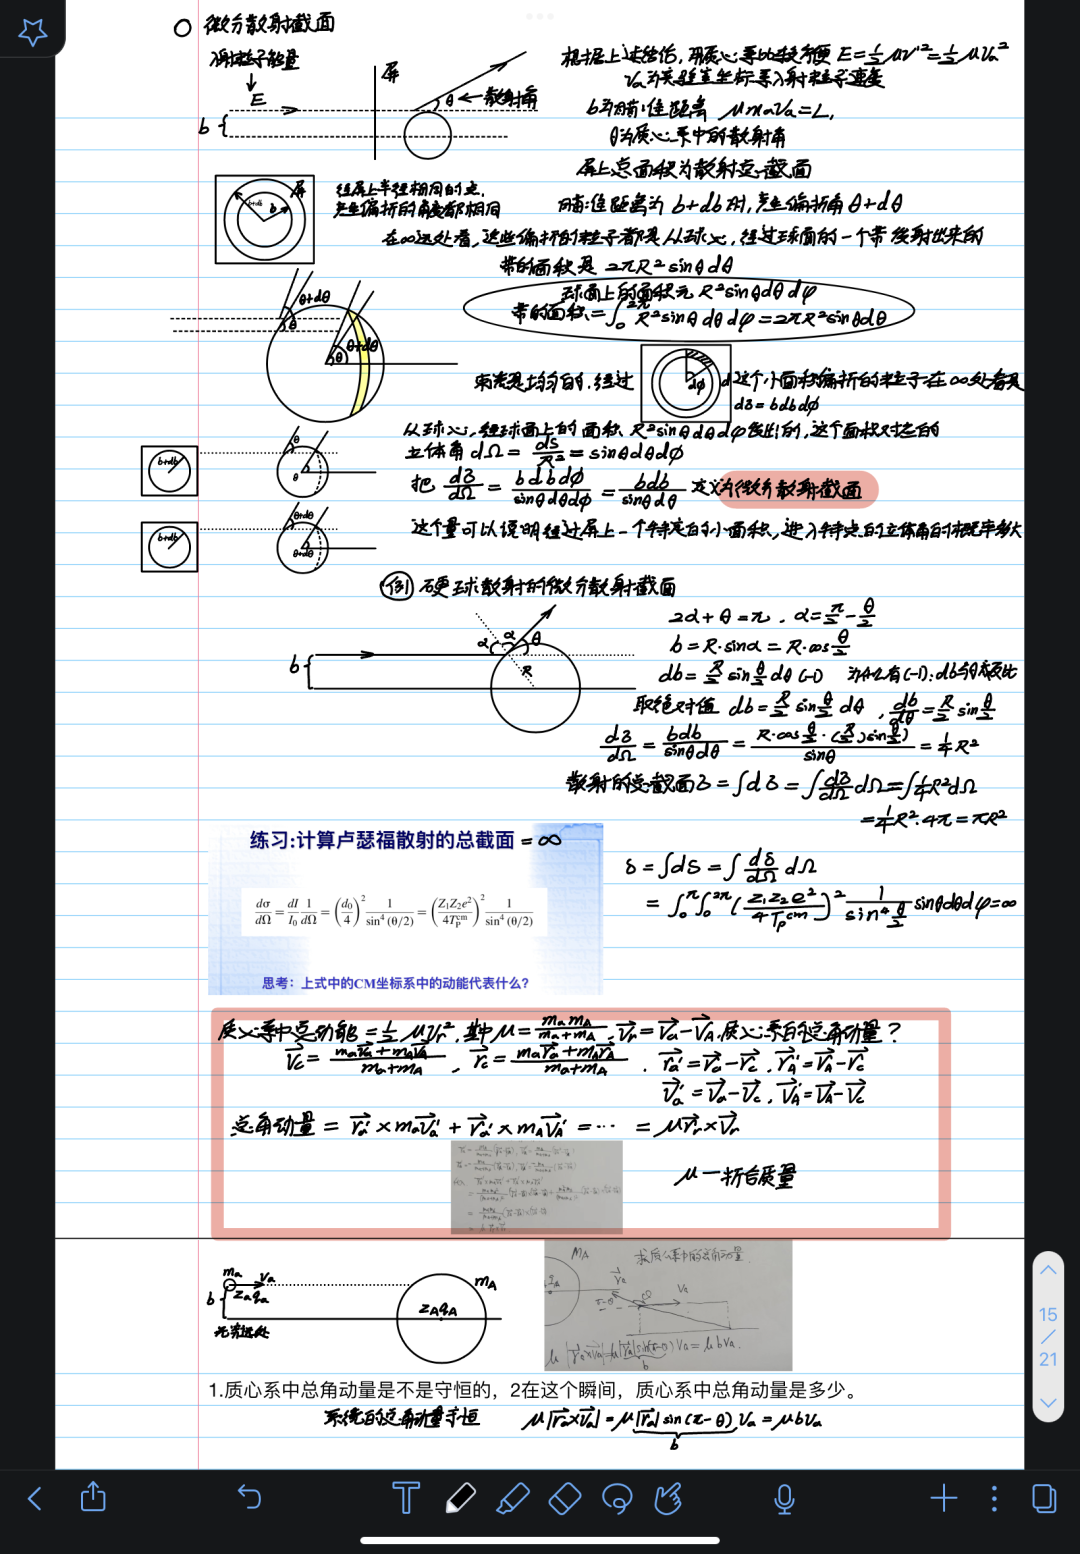 微分散射截面
入射粒子能量
E
b
屏
θ ← 散射角
根据上述结论，用质心系比较方便 E=½μv'²=½μVa²
Va为实验室坐标系入射粒子速度
b为瞄准距离 μmaVa=L,
θ为质心系中的散射角
屏上总面积为散射总截面
屏
b+db
b
经屏上半径相同的点,
产生偏折的角度都相同
瞄准距离为 b+db 时,产生偏折角 θ+dθ
在∞远处看,这些偏折的粒子都是从球心,经过球面的一个带发射出来的
带的面积是 2πR²sinθdθ
球面上的面积元 R²sinθdθdφ
带的面积=∫₀^2π R²sinθdθdφ=2πR²sinθdθ
θ+dθ
θ
θ+dθ
θ
束流是均匀的,经过
dϕ
这个小面积偏折的粒子在∞处看是
dδ=bdbdϕ
从球心,经球面上的面积 R²sinθdθdφ发出的,这个面积对应的
立体角 dΩ = ds/R² = sinθdθdϕ
把 dδ/dΩ = bdbdϕ/sinθdθdϕ = bdb/sinθdθ 定义为微分散射截面
b+db
θ
θ
这个量可以说明经过屏上一个特定的小面积,进入特定的立体角的概率多大
b+db
θ+dθ
θ+dθ
例 硬球散射的微分散射截面
b
α
α
θ
R
2α+θ=π, α=π/2-θ/2
b=R·sinα=R·cosθ/2
db=R/2 sinθ/2 dθ (-1) 为什么有(-1):db与θ成反比
取绝对值 db=R/2 sinθ/2 dθ, db/dθ=R/2 sinθ/2
dδ/dΩ = bdb/sinθdθ = R·cosθ/2·(R/2)sinθ/2)/sinθ = ¼R²
散射的总截面δ=∫dδ=∫dδ/dΩ dΩ=∫¼R²dΩ
=¼R²·4π=πR²
练习:计算卢瑟福散射的总截面 =∞
dσ/dΩ = dI/I₀ 1/dΩ = (d₀/4)² 1/sin⁴(θ/2) = (Z₁Z₂e²/4T_P^cm)² 1/sin⁴(θ/2)
思考：上式中的CM坐标系中的动能代表什么?
δ=∫dδ=∫dδ/dΩ dΩ
=∫₀^π∫₀^2π(Z₁Z₂e²/4Tp^cm)² 1/sin⁴θ/2 sinθdθdφ=∞
质心系中总动能=½μVr²,其中μ=mamA/ma+mA, Vr=Va-VA.质心系的总角动量?
Vc=maVa+mAVA/ma+mA, rc=mara+mArA/ma+mA, ra'=ra-rc, rA'=rA-rc
Va'=Va-Vc, VA'=VA-Vc
总角动量 = ra'×maVa' + rA'×mAVA' = ··· = μrr×Vr
μ—折合质量
ma
Va
Zaqa
b
无穷远处
mA
ZAqA
MA
求质心系中的总角动量
Va
π-θ
θ
μ|ra×Va|=μ|ra|sin(π-θ)Va=μbVa.
b
1.质心系中总角动量是不是守恒的，2在这个瞬间，质心系中总角动量是多少。
系统的总角动量守恒 μ|ra×Va|=μ|ra|sin(π-θ)Va=μbVa
b
15
/
21
T